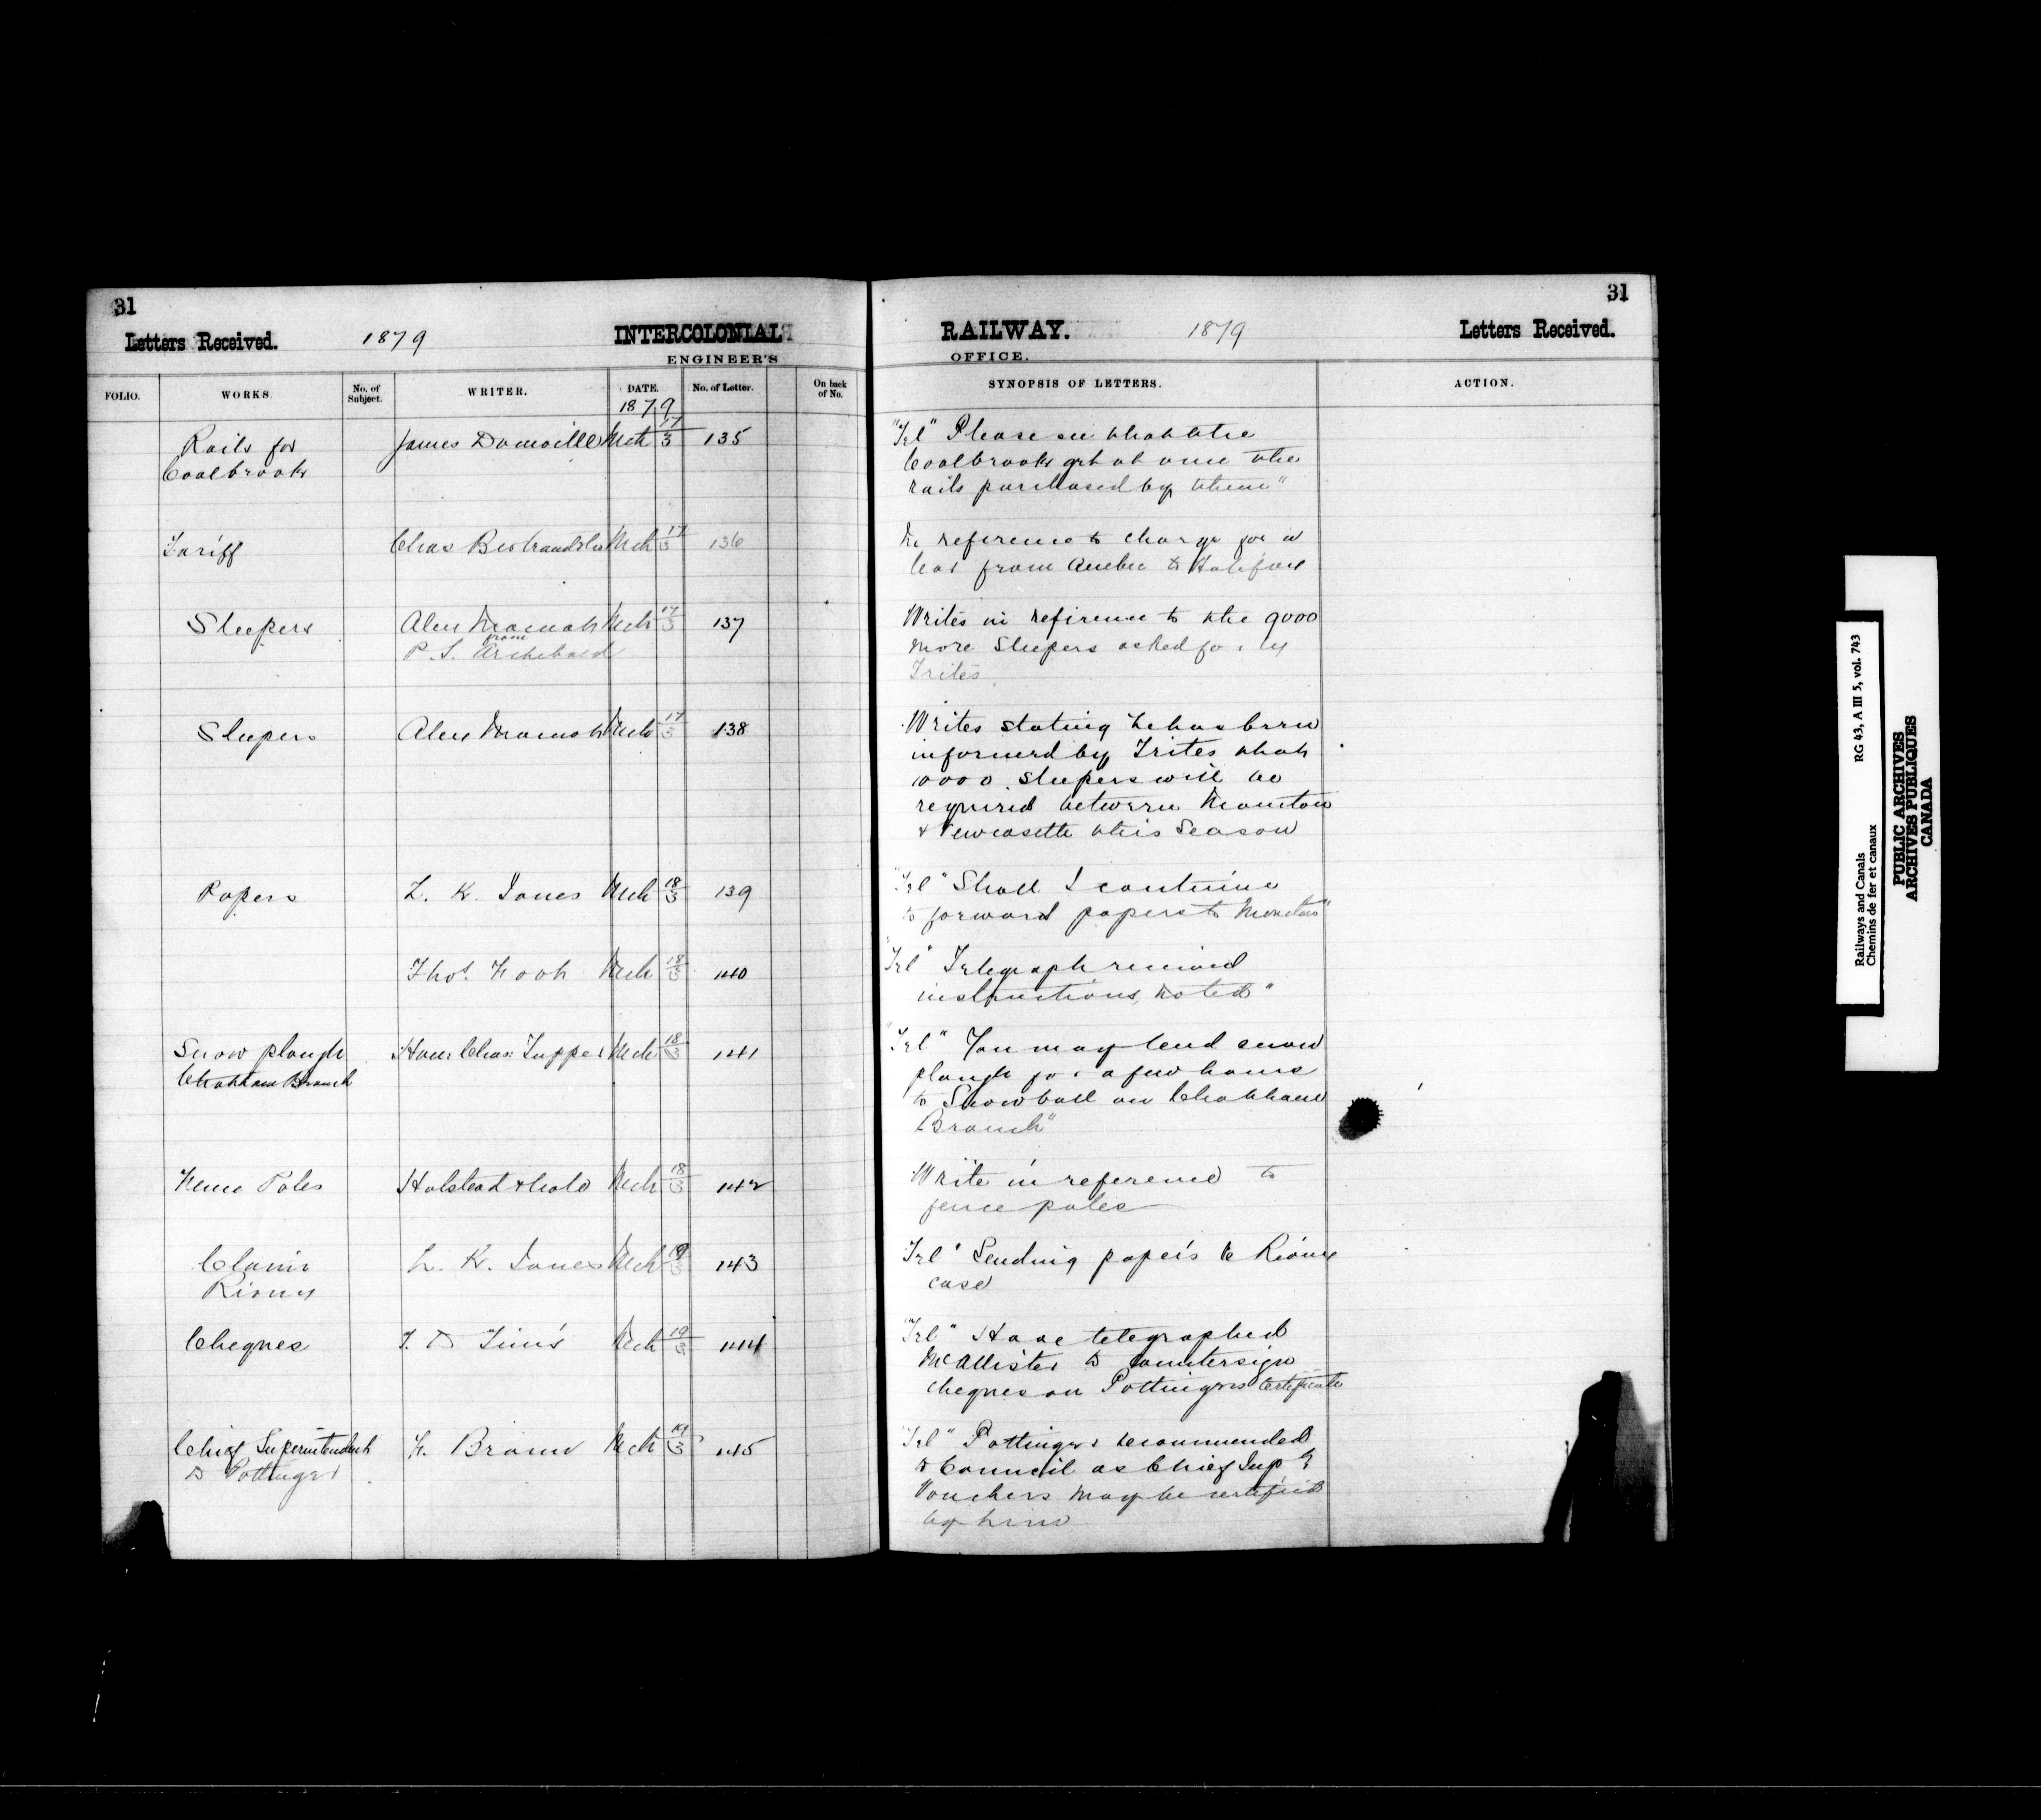 31
31
Letters Received.
1879
INTERCOLONIAL
RAILWAY.
1879
Letters Received.
ENGINEER'S
OFFICE.
FOLIO.
WORKS
No. of Subject.
WRITER.
DATE.
No. of Letter.
On back of No.
SYNOPSIS OF LETTERS.
ACTION.
1879
Rails for
Coalbrook
James Domville Mch 17/3 135
"Tel" Please see that the
Coalbrooks get at once the
rails purchased by them"
Tariff
Chas Bertrand & Co Mch 17/3 136
In reference to charge for a
Car from Quebec to Halifax
Sleepers
Alex Mch 17/3 137
from
P. S. Archibald
Writes in reference to the 9000
more Sleepers asked for by
Trites
Sleepers
Alex Mch 17/3 138
Writes stating he has been
informed by Trites that
10000 Sleepers will be
required between Moncton
& Newcastle this Season
Papers
L. K. Jones Mch 18/3 139
"Tel" Shall I continue
to forward papers to Moncton"
Thos. Foot Mch 18/3 140
"Tel" Telegraph received
instructions noted"
Snow plough
Chatham Branch
Hon Chas Tupper Mch 18/3 141
"Tel" You may lend snow
plough for a few hours
to Snowball on Chatham
Branch"
Fence Poles
Halstead & Mch 18/3 142
Write in reference to
fence poles
Claim
Rioux
L. K. Jones Mch 19/3 143
Tel" Sending papers re Rioux
case
Cheques
T. D Tims Mch 19/3 144
"Tel" Have telegraphed
McAllister to countersign
cheques on Pottingers Certificate
Chief Superintendent
D Pottinger
F. Braun Mch 19/3 145
"Tel" Pottinger recommended
to Council as Chief Sup
Vouchers may be certified
by him
RG 43, A III 5, vol. 743
Railways and Canals
Chemins de fer et canaux
PUBLIC ARCHIVES
ARCHIVES PUBLIQUES
CANADA